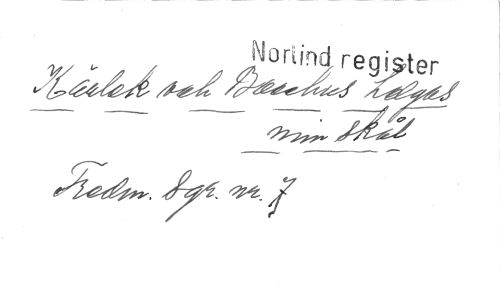 Norlind register
Kärlek och Bacchus helgas
min skål
Fredm. Sgr. nr. 7